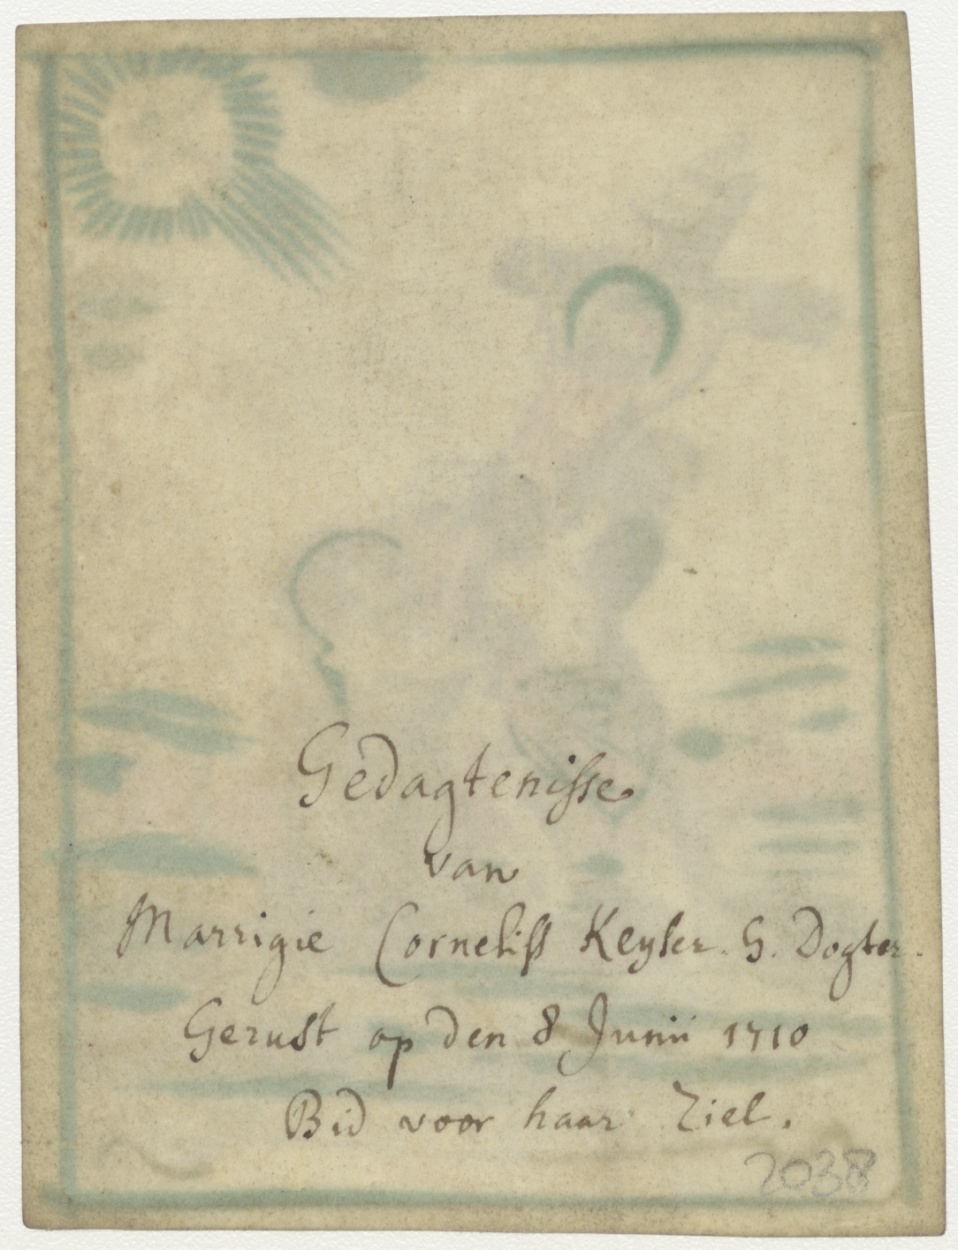 Gedagtenisse
van
Marrigie Corneliss Keyser. G. Dogter.
Gerust op den 8 Junii 1710
Bid voor haar Ziel.
2038